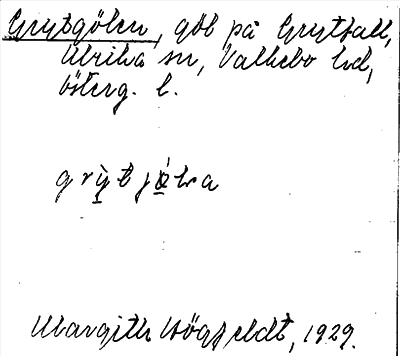 Grytgölen, göl på Grytfall,
Ulrika sn, Valkebo hd,
Österg. l.
grỳt jö́lva
Margith Högfeldt, 1929.